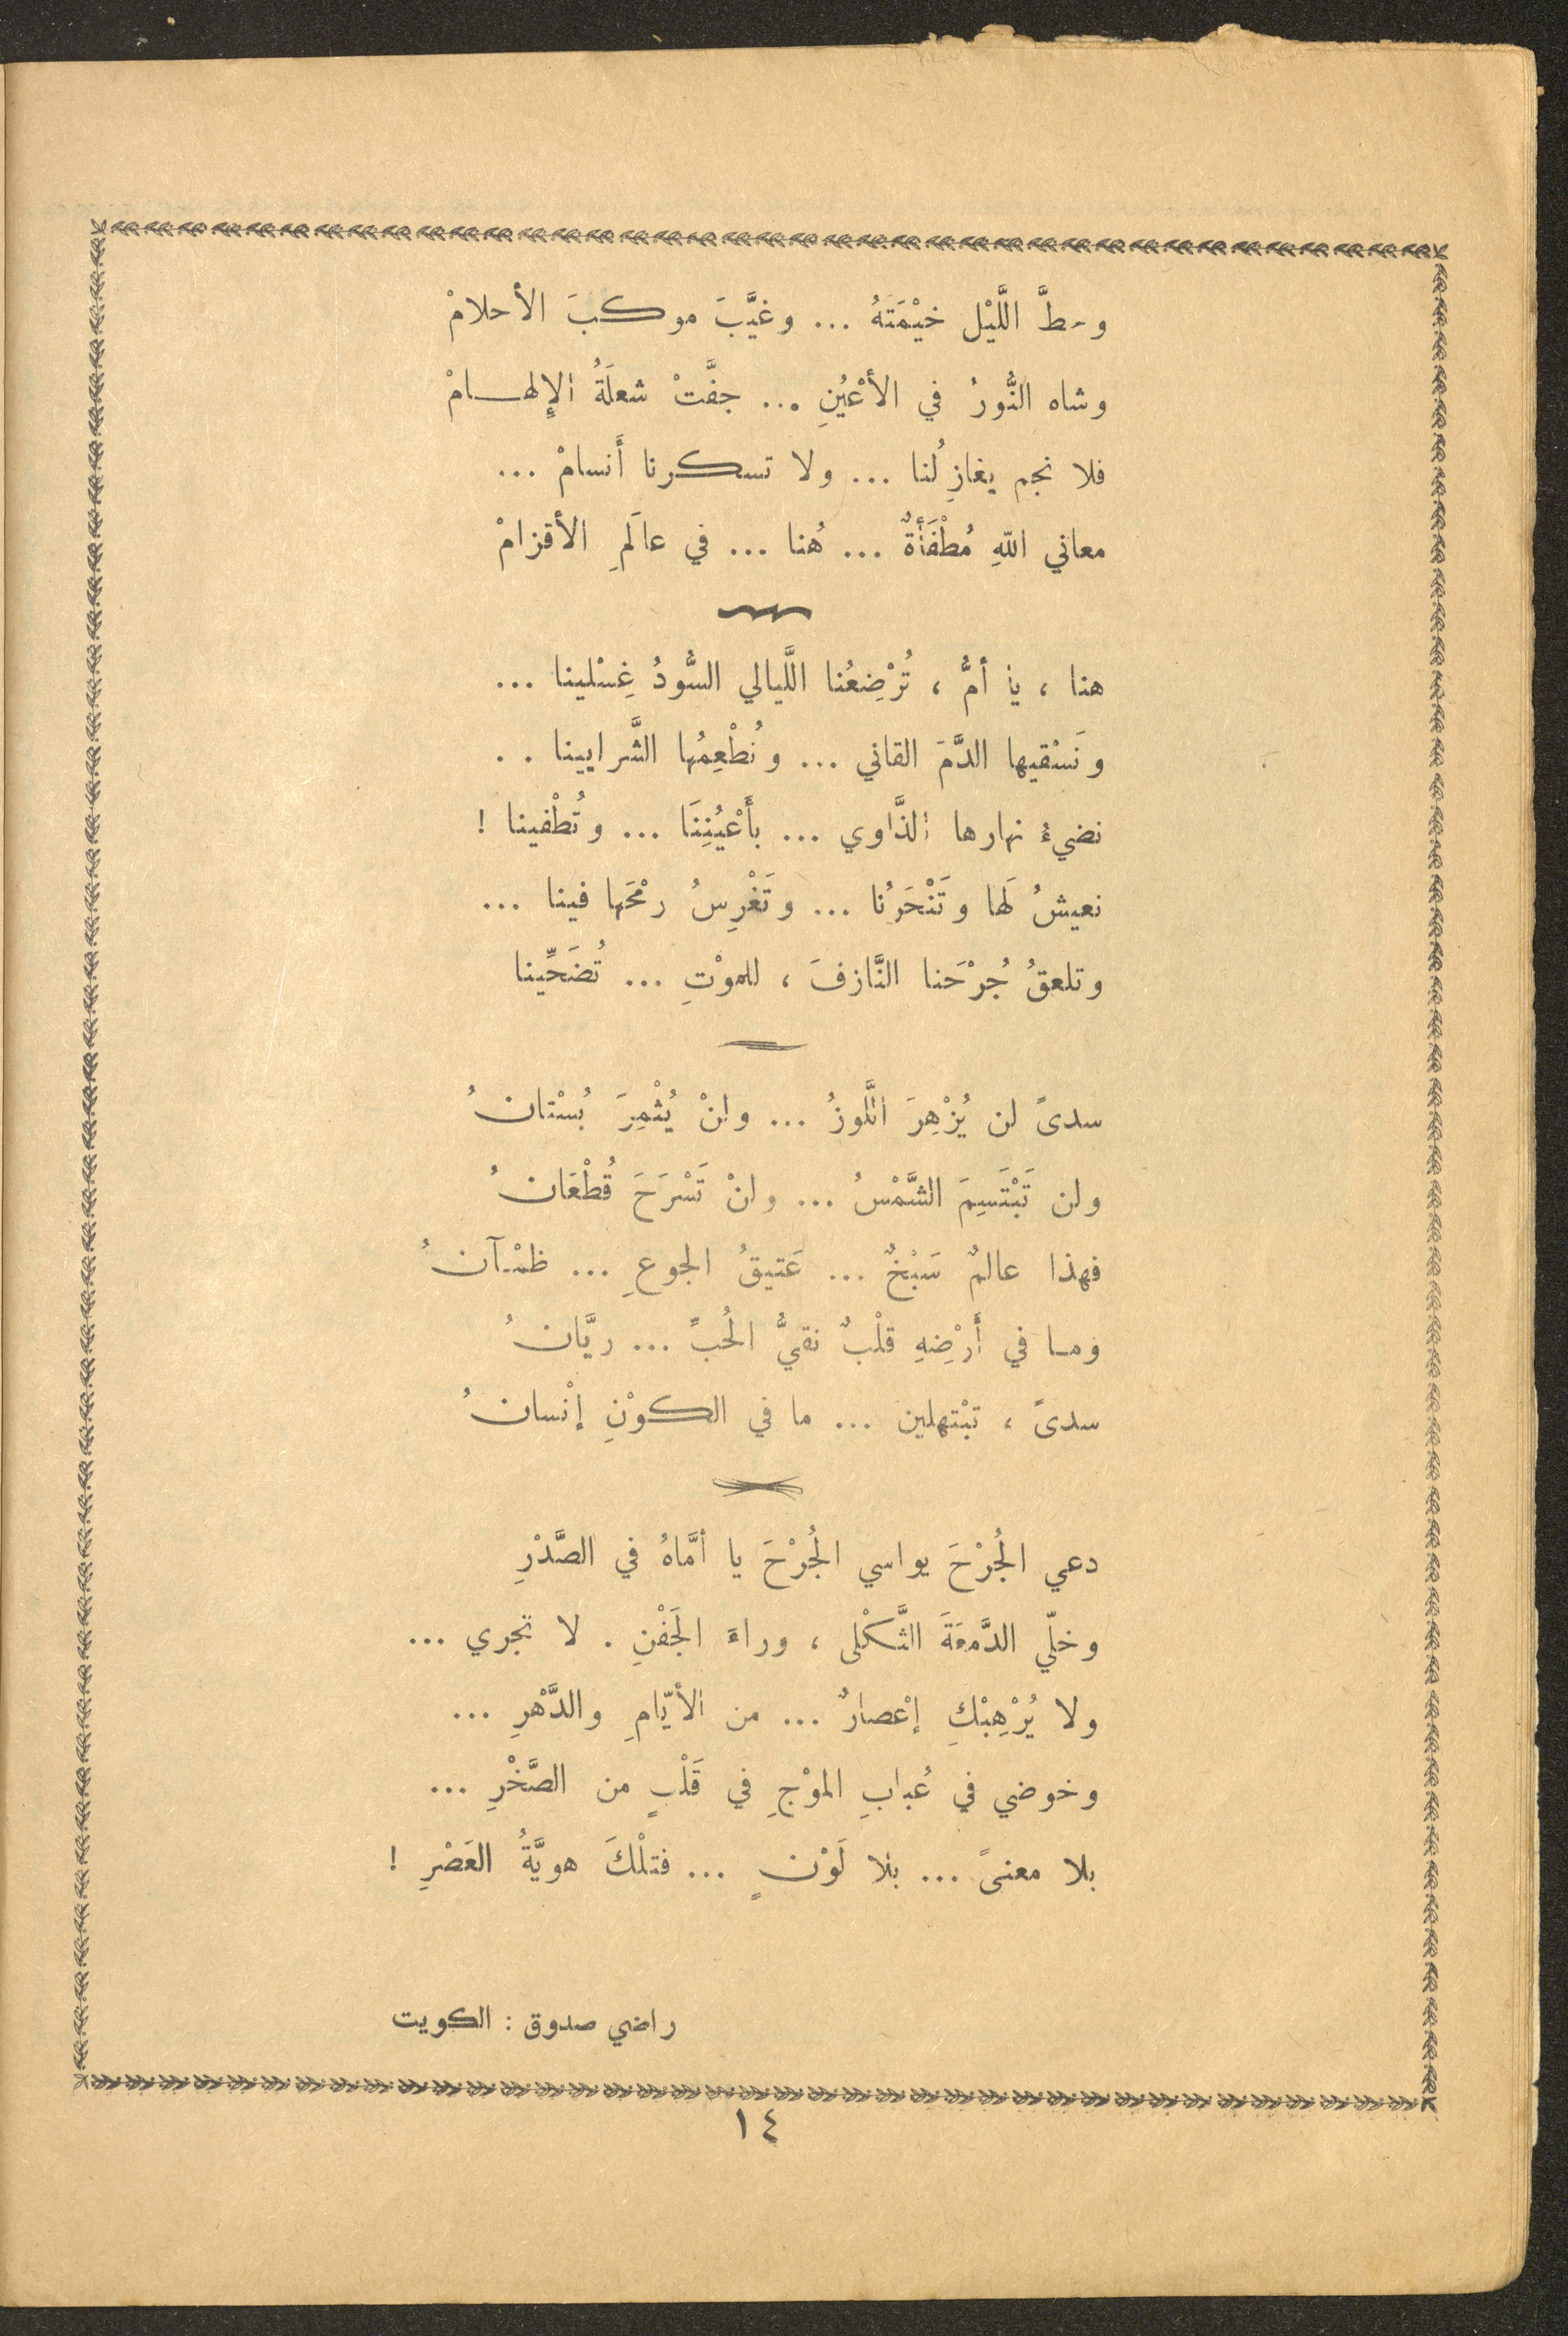 وحطَّ اللَّيْل خيْمَتَهُ ... وغيَّبَ موكبَ الأحلامْ
وشاه النُّورُ في الأعْيُنِ ... جفَّتْ شعلَةُ الإلهامْ
فلا نجم يغازِلُنا ... ولا تسكرنا أَنسامْ ...
معاني اللهِ مُطْفَأةٌ ... هُنا ... في عالَمِ الأقزامْ
هنا ، يا أمُّ ، تُرْضِعُنا اللَّيالي السُّودُ غِسْلينا ...
ونَسْقيها الدَّمَ القاني ... ونُطْعِمُها الشَّرايينا . .
نضيءُ نهارها الذَّاوي ... بأَعْيُنِنَا ... وتُطْفينا !
نعيشُ لَها وتَنْحَرُنا ... وتَغْرِسُ رمْحَها فينا ...
وتلعقُ جُرْحَنا النَّازفَ ، للموْتِ ... تُضَحِّينا
سدىً لن يُزْهِرَ اللَّوزُ ... ولنْ يُثْمِرَ بُسْتانُ
ولن تَبْتَسِمَ الشَّمْسُ ... ولنْ تَسْرَحَ قُطْعَانُ
فهذا عالمٌ سَبْخٌ ... عَتيقُ الجوعِ ... ظمْآنُ
وما في أَرْضِهِ قلْبٌ نقيُّ الحُبِّ ... ريَّانُ
سدىً ، تبْتهلين ... ما في الكوْنِ إنْسانُ
دعي الجُرْحَ يواسي الجُرْحَ يا أمَّاهُ في الصَّدْرِ
وخلّي الدَّمعَةَ الثَّكْلى ، وراءَ الجَفْنِ . لا تجري ...
ولا يُرْهِبْكِ إعْصارٌ ... من الأيّامِ والدَّهْرِ ...
وخوضي في عُبابِ الموْجِ في قَلْبٍ من الصَّخْرِ ...
بلا معنىً ... بلا لَوْنٍ ... فتلْكَ هويَّةُ العَصْرِ !
راضي صدوق : الكويت
١٤